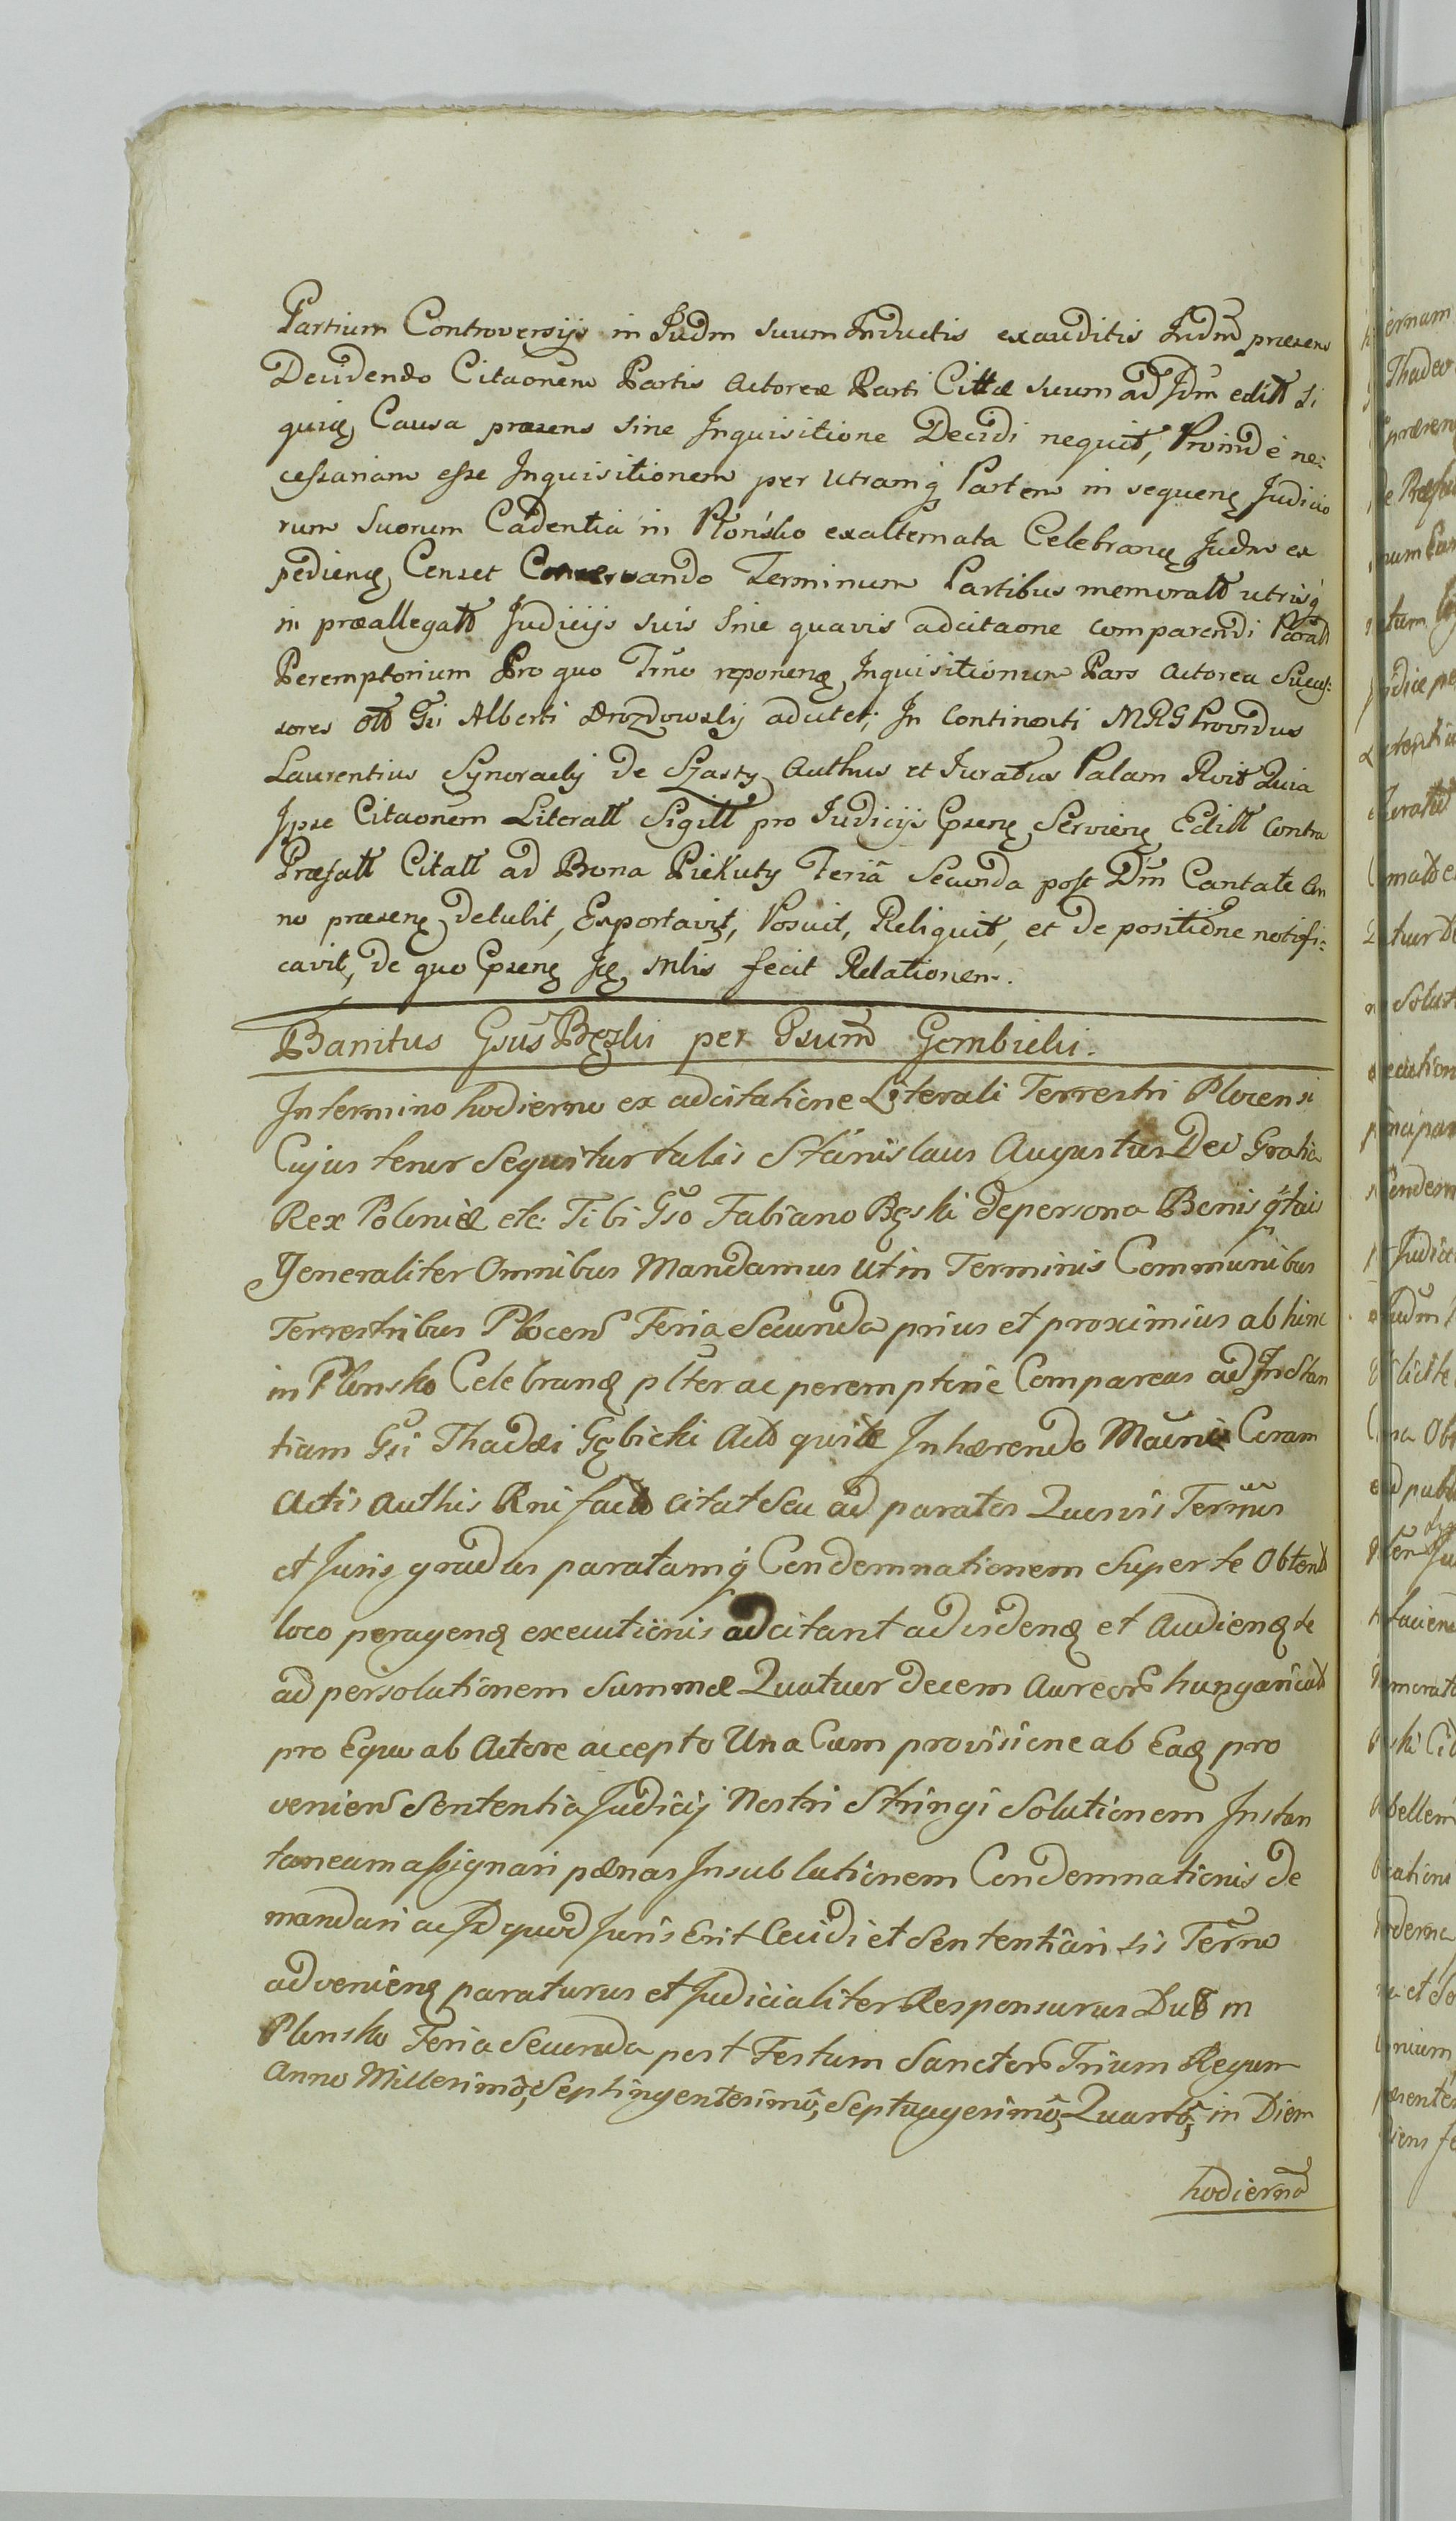 Partium Controversijs in Iudm suum Inductis exauditis Iudm præsens
Decidendo Citaonem Partis Actoreæ Parti Cittæ suum ad Jdm editt Si
quiđ Causa præsens sine Inquisitione Decidi nequit, Proinde ne:
cessariam esse Inquisitionem per utramq Partem in sequenđ Judicio
rum Suorum Cadentia in Płońsko exalternata Celebranđ Judm ex
pedienđ Censet Conservando Terminum Partibus memoratt utrisq
in præallegatt Judicijs suis Sine quavis adcitaone comparendi
Peremptorium Pro quo Trno reponenđ Inquisitionum Pars Actorea Succes:
sores Gsi Alberti Drozdowskij adcitet; In Continenti MRG Providus
Laurentius Synoradzkij de Szasty Authus et Iuratus Palam Rvit Quia
Ipse Citaonem Literatt Sigill pro Iudicijs Servienđ Editt Contra
Præfatt Citatt ad Bona Piekuty Feria Secunda post Dm Cantate An
no præsenđ detulit, Exportavit, Posuit, Reliquit, et de positione notifi:
cavit, de quo fecit Relationem.
Banitus Gsus Bęski per Gsum Gembicki.
In termino hodierno ex adcitatione Literali Terrestri Plocensi
Cujus tenor Sequitur talis Stanislaus Augustus Dei Gratia
Rex Poloniæ etc: Tibi Gso Fabiano Bęski de persona Bonis qtais
Generaliter Omnibus Mandamus Ut in Terminis Communibus
Terrestribus Plocens Feria Secunda prius et proximius ab hinc
in Plonsko Celebranđ plter ac peremptorie Compareas ad Instan
tiam Gsi Thadæi Gębicki Act qui te Inhærendo Coram
Actis Authis facto citat Seu ad paratos Quosvis Termnos
et Juris gradus paratamq Condemnationem Super te Obtent
loco peragenđ executionis adcitant ad videnđ et Audienđ te
ad persolutionem Summæ Quatuor decem Aureor hungaricat
pro Equo ab Actore accepto Una Cum provisione ab Eađ pro
veniens Sententia Judicij Nostri Stringi Solutionem Instan
taneam assignari pœnas In sublutionem Condemnationis de
mandari ac Id quod Juris Erit Decidi et Sententiari sis Termo
advenienđ paraturus et Judicialiter Responsurus Dat in
Plonsko Feria Secunda post Festum Sanctor Trium Regum
Anno Millesimo, Septingentesimo, Septuagesimo, Quarto, in Diem
hodierna